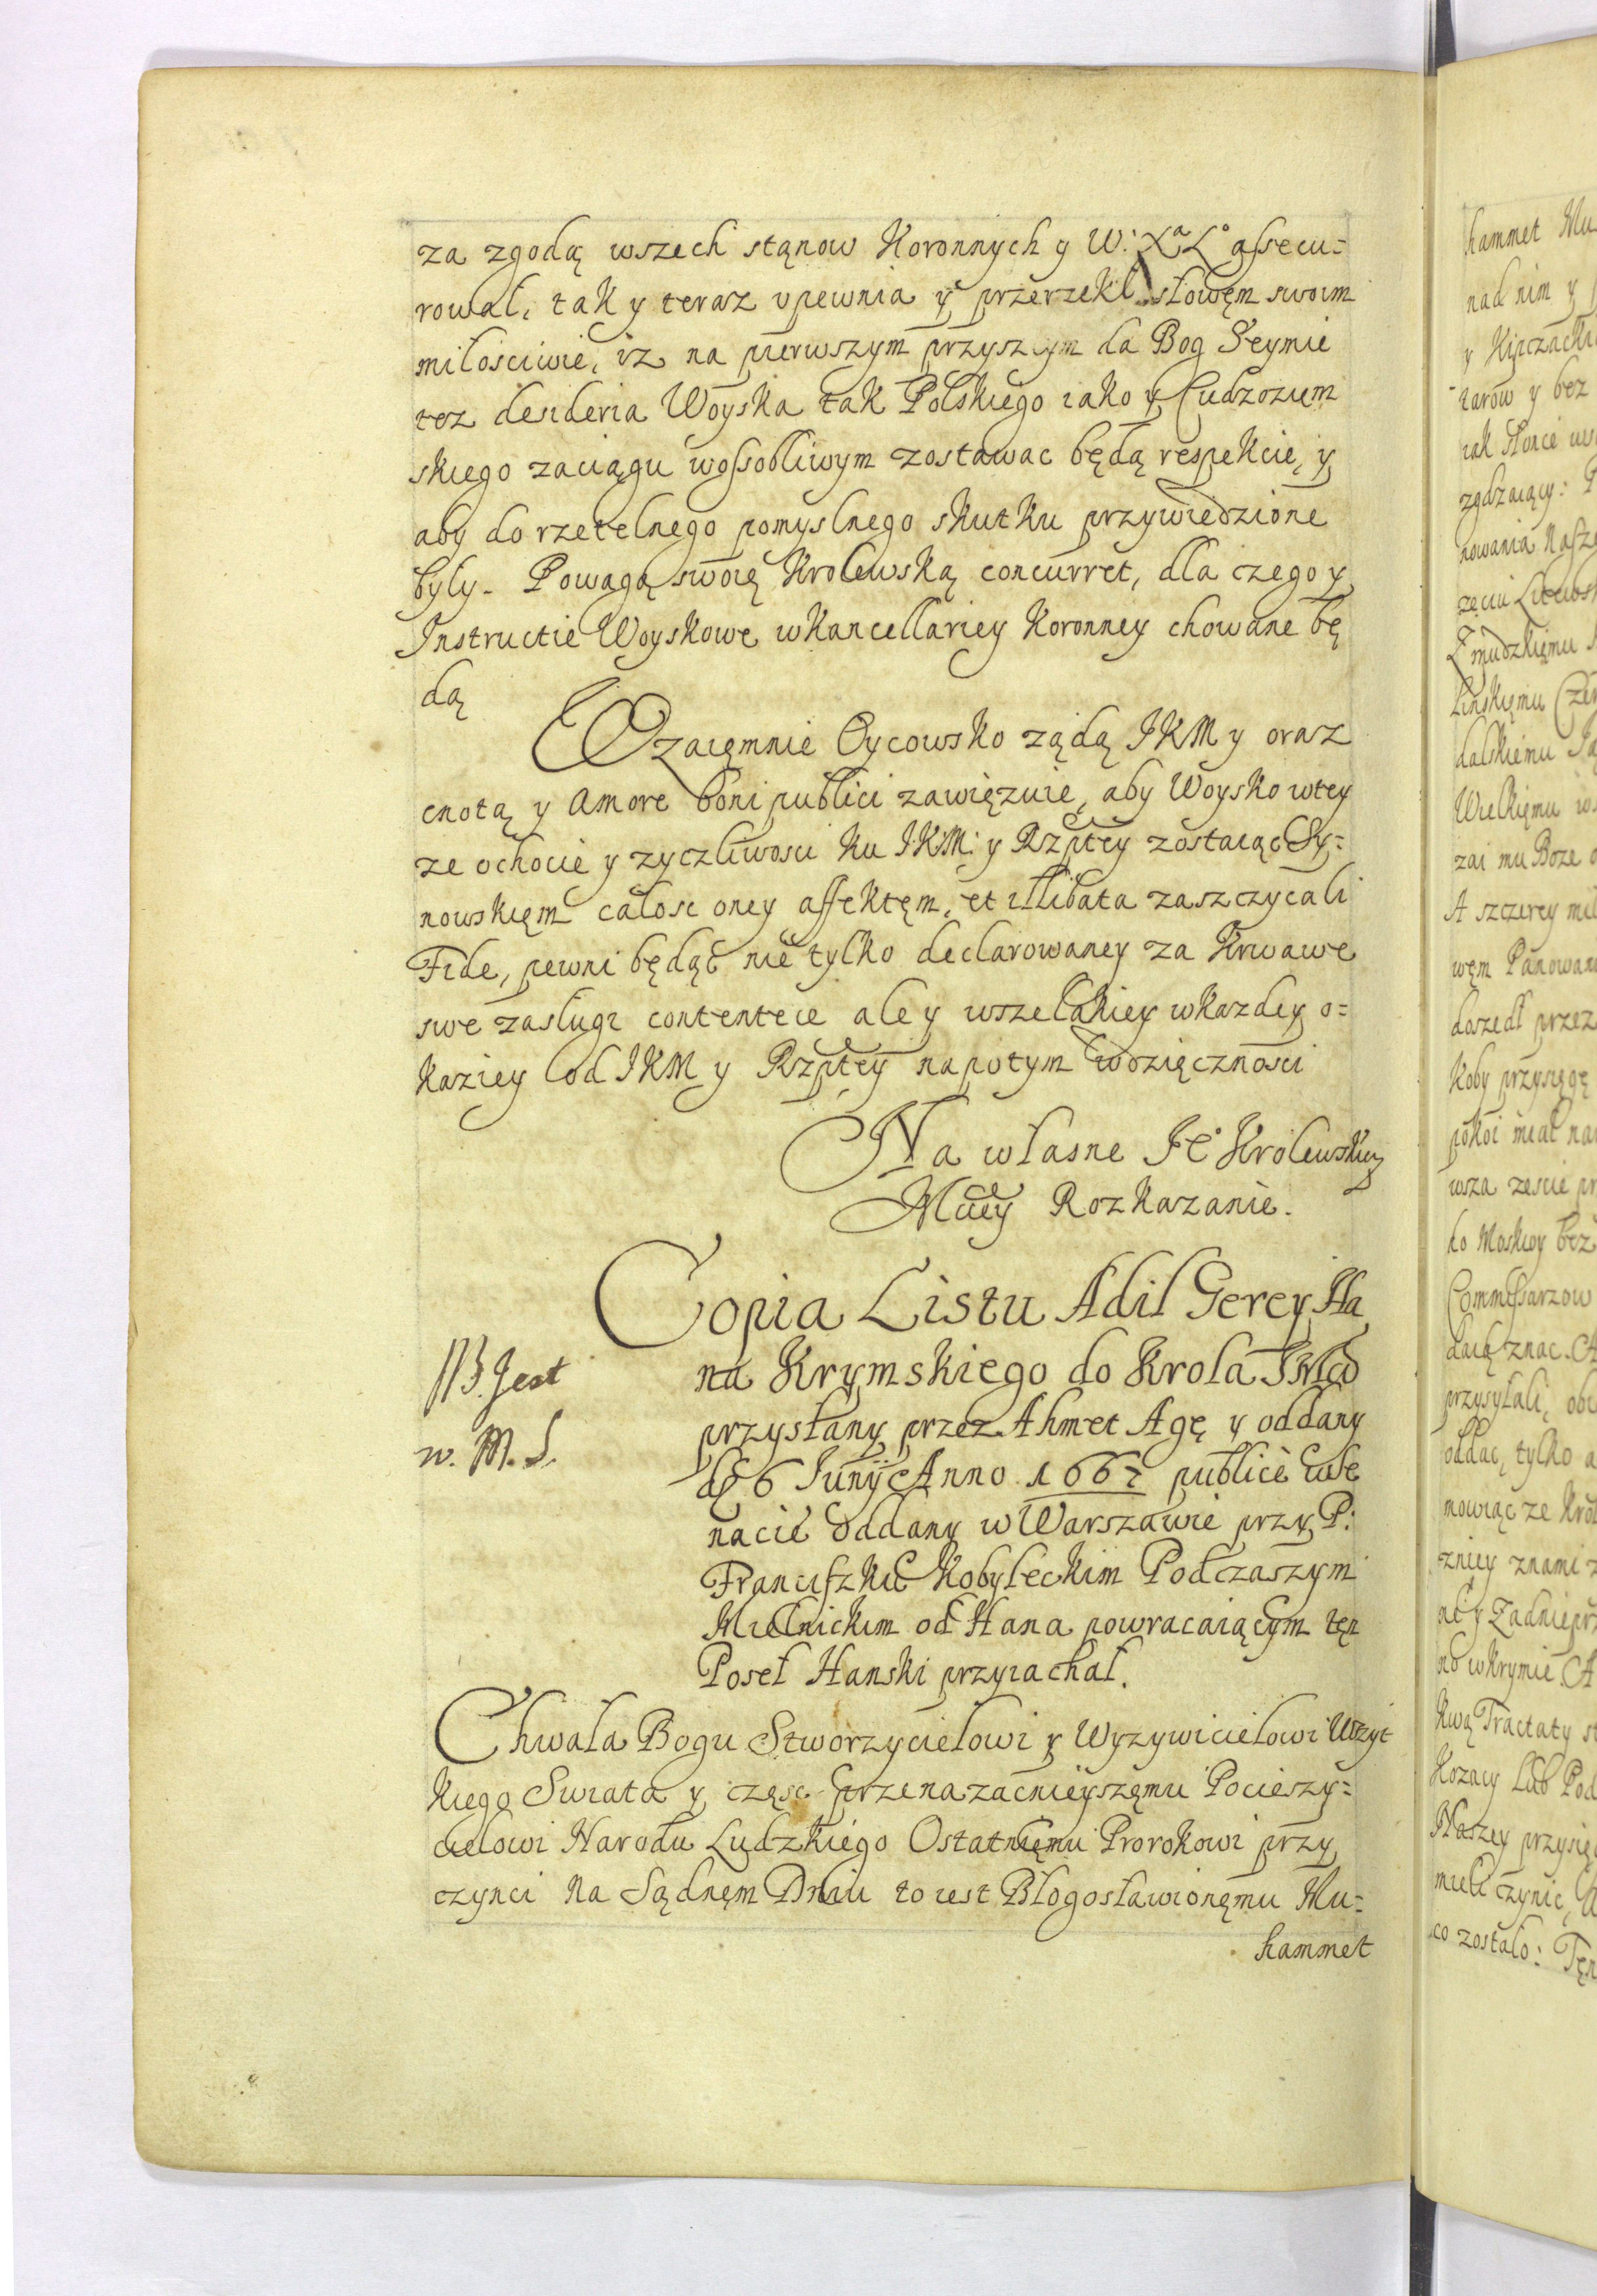 za zgodą wszech stąnow Koronnych y W: Xa Lo assecu=
rował, tak y teraz upewnia y przerzekł słowęm swoim
miłosciwie, iz na pierwszym przyszłym da Bog Seymie
tez desideria Woyska tak Polskiego iako y Cudzoziem
skiego zaciągu wossobliwym zostawac będą respekcie, y
aby do rzetelnego pomyslnego skutku przywiedzione
były. Powagą swoią Krolewską concurret, dla czego y
Instructie Woyskowe wKancellariey Koronney chowane bę
dą
Wzaięmnie Oycowsko ządą JKM y oraz
cnotą y amore boni publici zawięzuie, aby Woysko wtey
ze ochocie y zyczliwosci ku JKM: y Rzptey zostaiąc Sy=
nowskięm całosc oney affektęm, et illibata zaszczycali
Fide, pewni będąc nie tylko declarowaney za Krwawe
swe zasługi contentece ale y wszelakiey wkazdey o=
kaziey od JKM y Rzptey napotym wdzięcznosci
Na własne Je° Krolewskiey
Mcęy Rozkazanie.
Copia Listu Adil Gerey Ha
na Krymskiego do Krola JMCi
przysłany przez Ahmet Agę y oddany
de 6 Junij Anno 1667 publicè wSe
nacie oddany w Warszawie przy P:
Franciszku Kobyłeckim Podczaszym
Mielnickim od Hana powracaiącym tęn
Poseł Hanski przyiachał.
NB. Jest
w. M. S.
Chwała Bogu Stworzycielowi y Wyzywicielowi Wszyt
kiego Swiata y częsc przenazacnieyszęmu Pocieszy=
cielowi Narodu Ludzkiego Ostatnięmu Prorokowi przy
czynci Na Sądnęm Dniu to iest Błogosławionęmu Mu=
hammet
hammet Mu
nad nim y p
y Kipczacki
tarow y bez
iak słonce
zgdzaiący: P
nowania Nasze
zęciu Litewsk
Zmudzkięmu
Wielkięmu
zai mu Boze
A szczerey mił
węm Panowan
doszedł przez
Koby przysięgę
pokoi miał na
wsza zescie pr
do Moskwy bez
Commissarzow
daią znac. A
przysyłali, obi
oddac, tylko a
mowiąc ze Kro
zniey znami z
no wkrymie. A
Kwą Tractaty st
Kozacy lub Pod
Naszey przysię
mieli czynic,
co zostało: Tęn